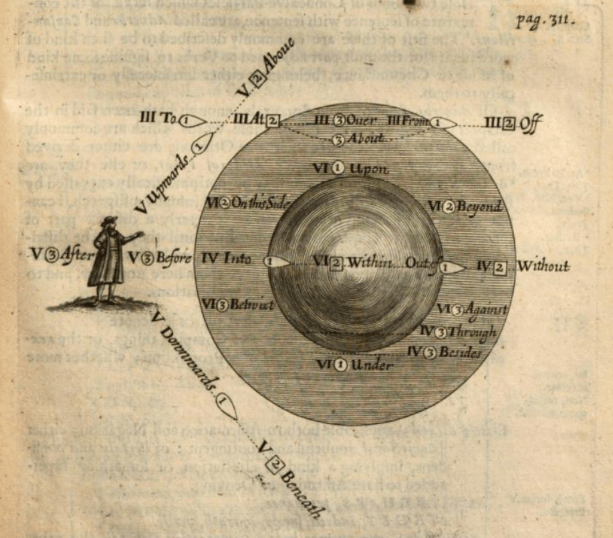 pag. 311.
V 2 Above
III To 1 III At 2 III 3 Over III From 1 III 2 Off
3 About
V Upwards 1
VI 1 Upon
VI 2 On this Side VI 2 Beyond
V 3 After V 3 Before IV Into 1 VI 2 Within Out of 1 IV 2 Without
VI 3 Betwixt VI 3 Against
IV 3 Through
V Downwards 1 IV 3 Besides
VI 1 Under
V 2 Beneath